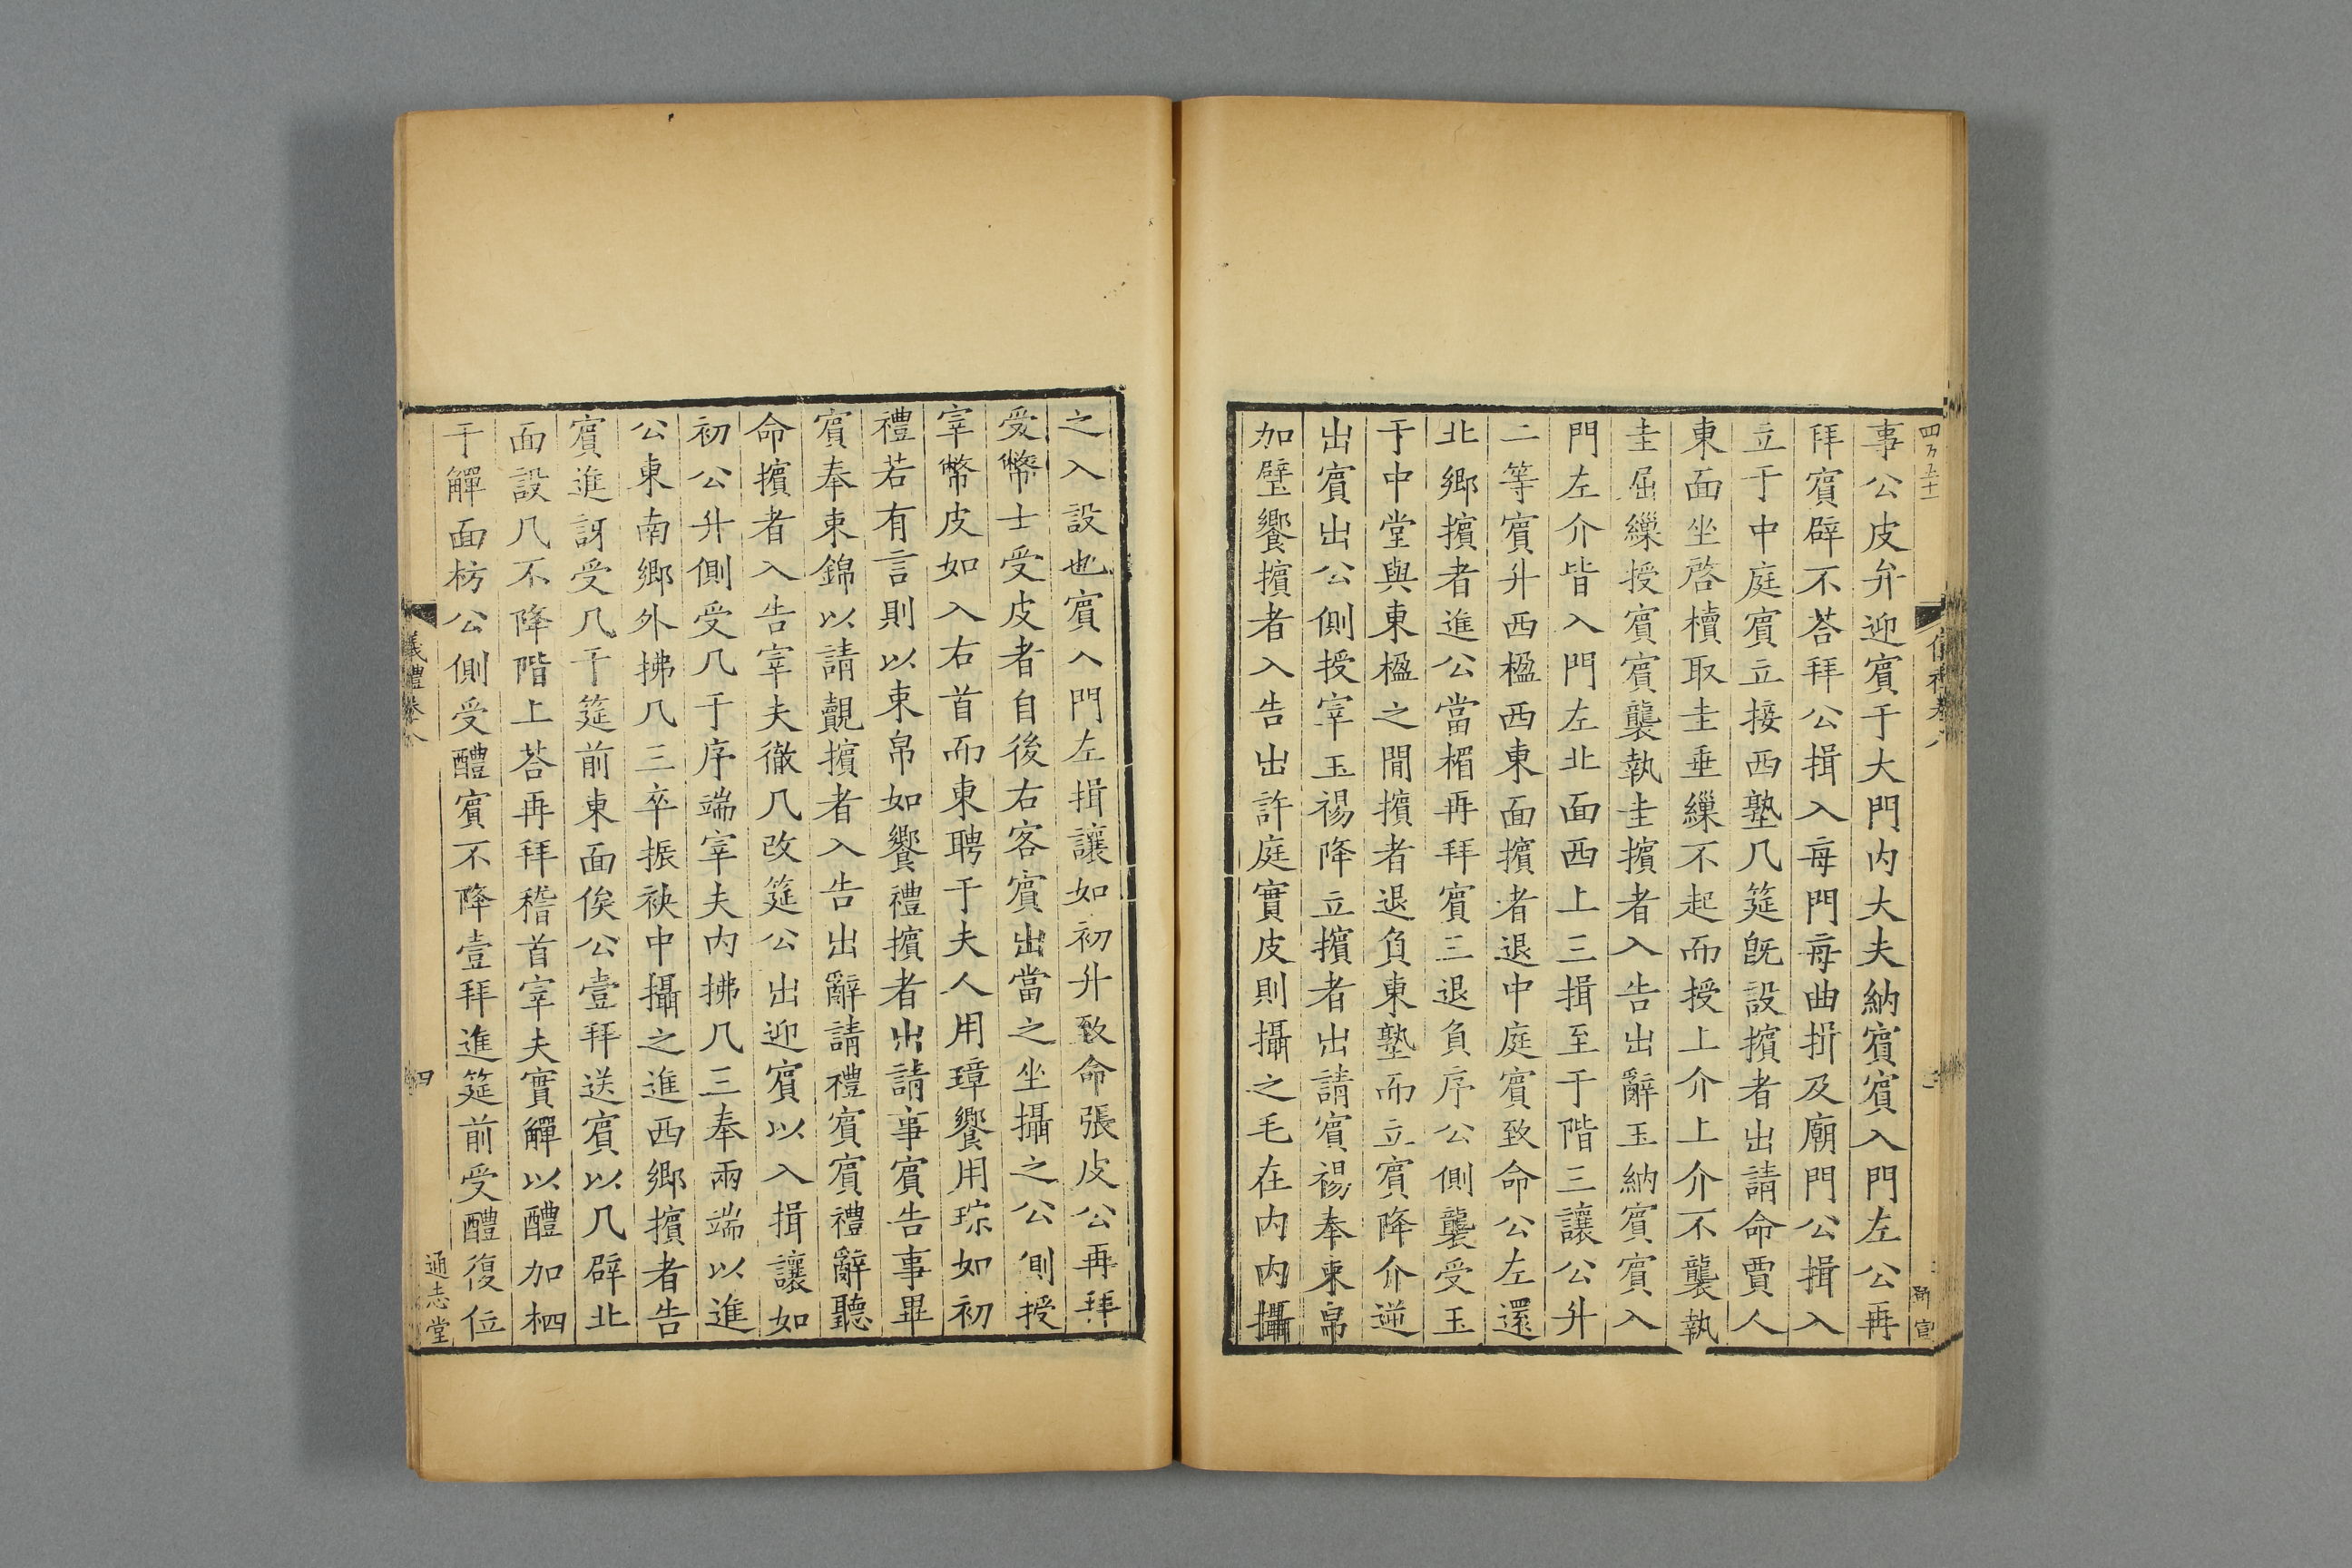 事公皮弁迎賔于大門内大夫納賔賔入門左公再
拜賔辟不荅拜公揖入每門每曲揖及廟門公揖入
立于中庭賔立接西塾几筵既設擯者出請命賈人
東面坐啓櫝取圭垂繅不起而授上介上介不襲執
圭屈繅授賔賔襲執圭擯者入告出辭玉納賔賔入
門左介皆入門左北面西上三揖至于階三讓公升
二等賔升西楹西東面擯者退中庭賔致命公左還
北鄉擯者進公當楣再拜賔三退負序公側襲受玉
于中堂與東楹之間擯者退負東塾而立賔降介逆
出賔出公側授宰玉裼降立擯者出請賔裼奉束帛
加璧饗擯者入告出許庭實皮則攝之毛在内内攝
之入設也賔入門左揖讓如初升致命張皮公再拜
受幣士受皮者自後右客賔出當之坐攝之公側授
宰幣皮如入右首而東聘于夫人用璋饗用琮如初
禮若有言則以束帛如饗禮擯者出請事賔告事畢
賔奉束錦以請覿擯者入告出辭請禮賔賔禮辭聽
命擯者入告宰夫徹几改筵公出迎賔以入揖讓如
初公升側受几于序端宰夫内拂几三奉兩端以進
公東南鄉外拂几三卒振袂中攝之進西鄉擯者告
賔進訝受几于筵前東面俟公壹拜送賔以几辟北
面設几不降階上荅再拜稽首宰夫實觶以醴加柶
于觶面枋公側受醴賔不降壹拜進筵前受醴復位
儀禮卷八
四
通志堂